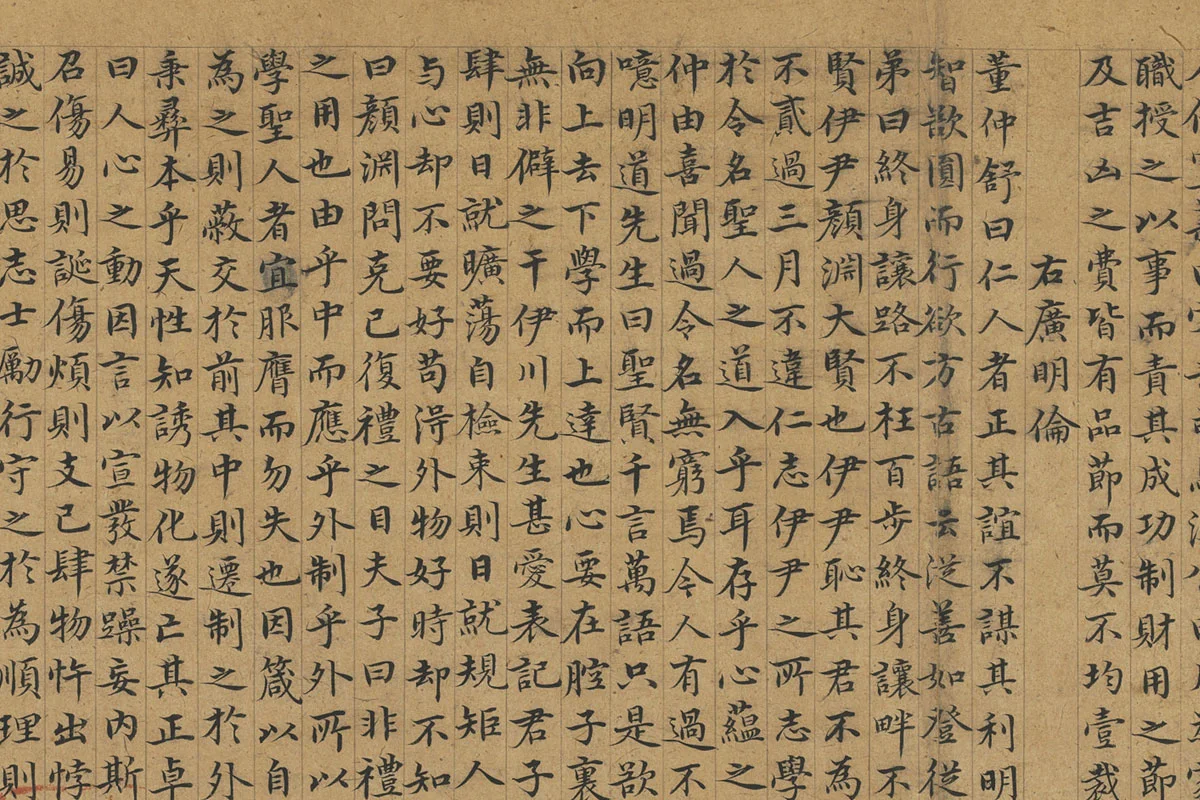 職授之以事而責其成功制財用之節
及吉凶之費皆有品節而莫不均壹裁
右廣明倫
董仲舒曰仁人者正其誼不謀其利明
智欲圓而行欲方古語云從善如登從
弟曰終身讓路不枉百步終身讓畔不
賢伊尹顏淵大賢也伊尹恥其君不為
不貳過三月不違仁志伊尹之所志學
於令名聖人之道入乎耳存乎心蘊之
仲由喜聞過令名無窮焉今人有過不
噫明道先生曰聖賢千言萬語只是欲
向上去下學而上達也心要在腔子裏
無非僻之干伊川先生甚愛表記君子
肆則日就曠蕩自檢束則日就規矩人
与心却不要好苟得外物好時却不知
曰顏淵問克己復禮之目夫子曰非禮
之用也由乎中而應乎外制乎外所以
學聖人者宜服膺而勿失也因箴以自
為之則蔽交於前其中則遷制之於外
秉彝本乎天性知誘物化遂亡其正卓
曰人心之動因言以宣發禁躁妄內斯
召傷易則誕傷煩則支己肆物忤出悖
誠之於思志士勵行守之於為順理則